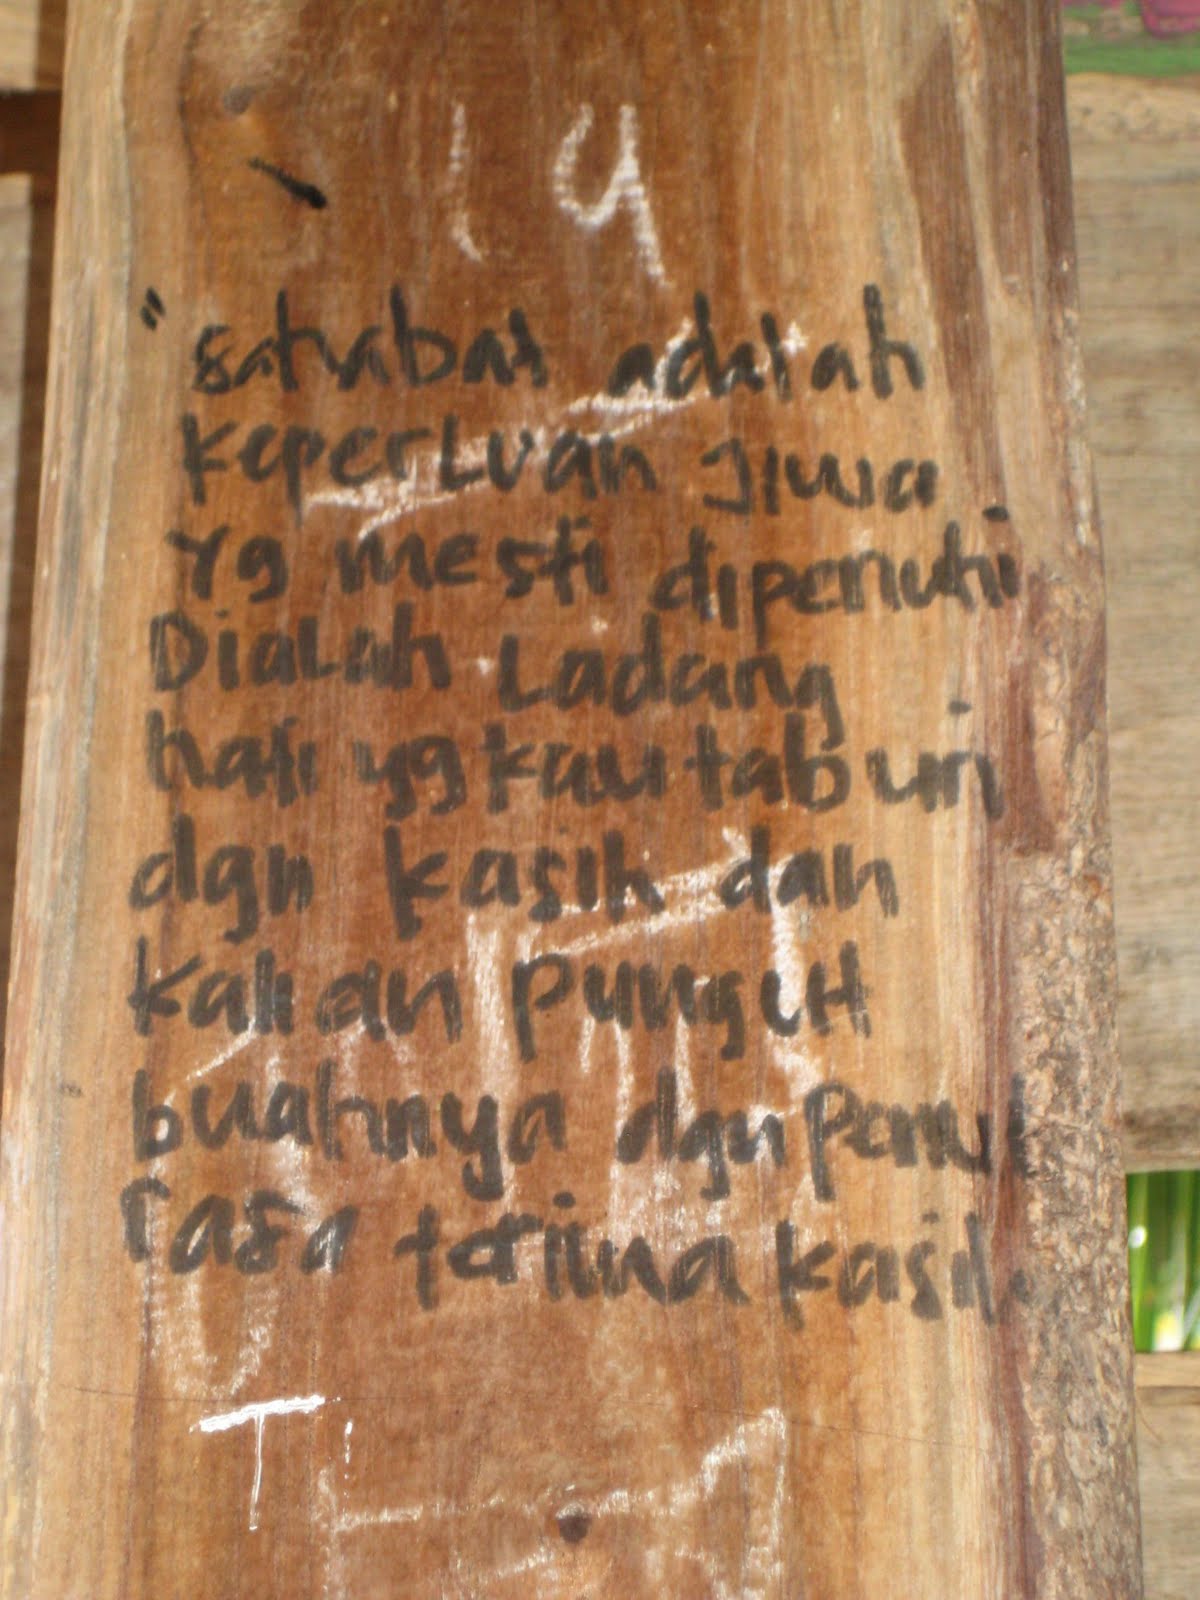 "sahabat adalah
Keperluan Jiwa
Yg mesti dipenuhi
Dialah Ladang
hati yg kau taburi
dgn kasih dan
Kalian pungut
buahnya dgn penuh
rasa terima kasih.